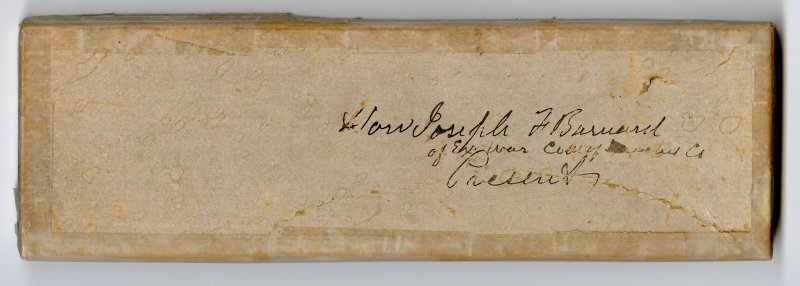 Hon Joseph F Barnard
of the war
Present